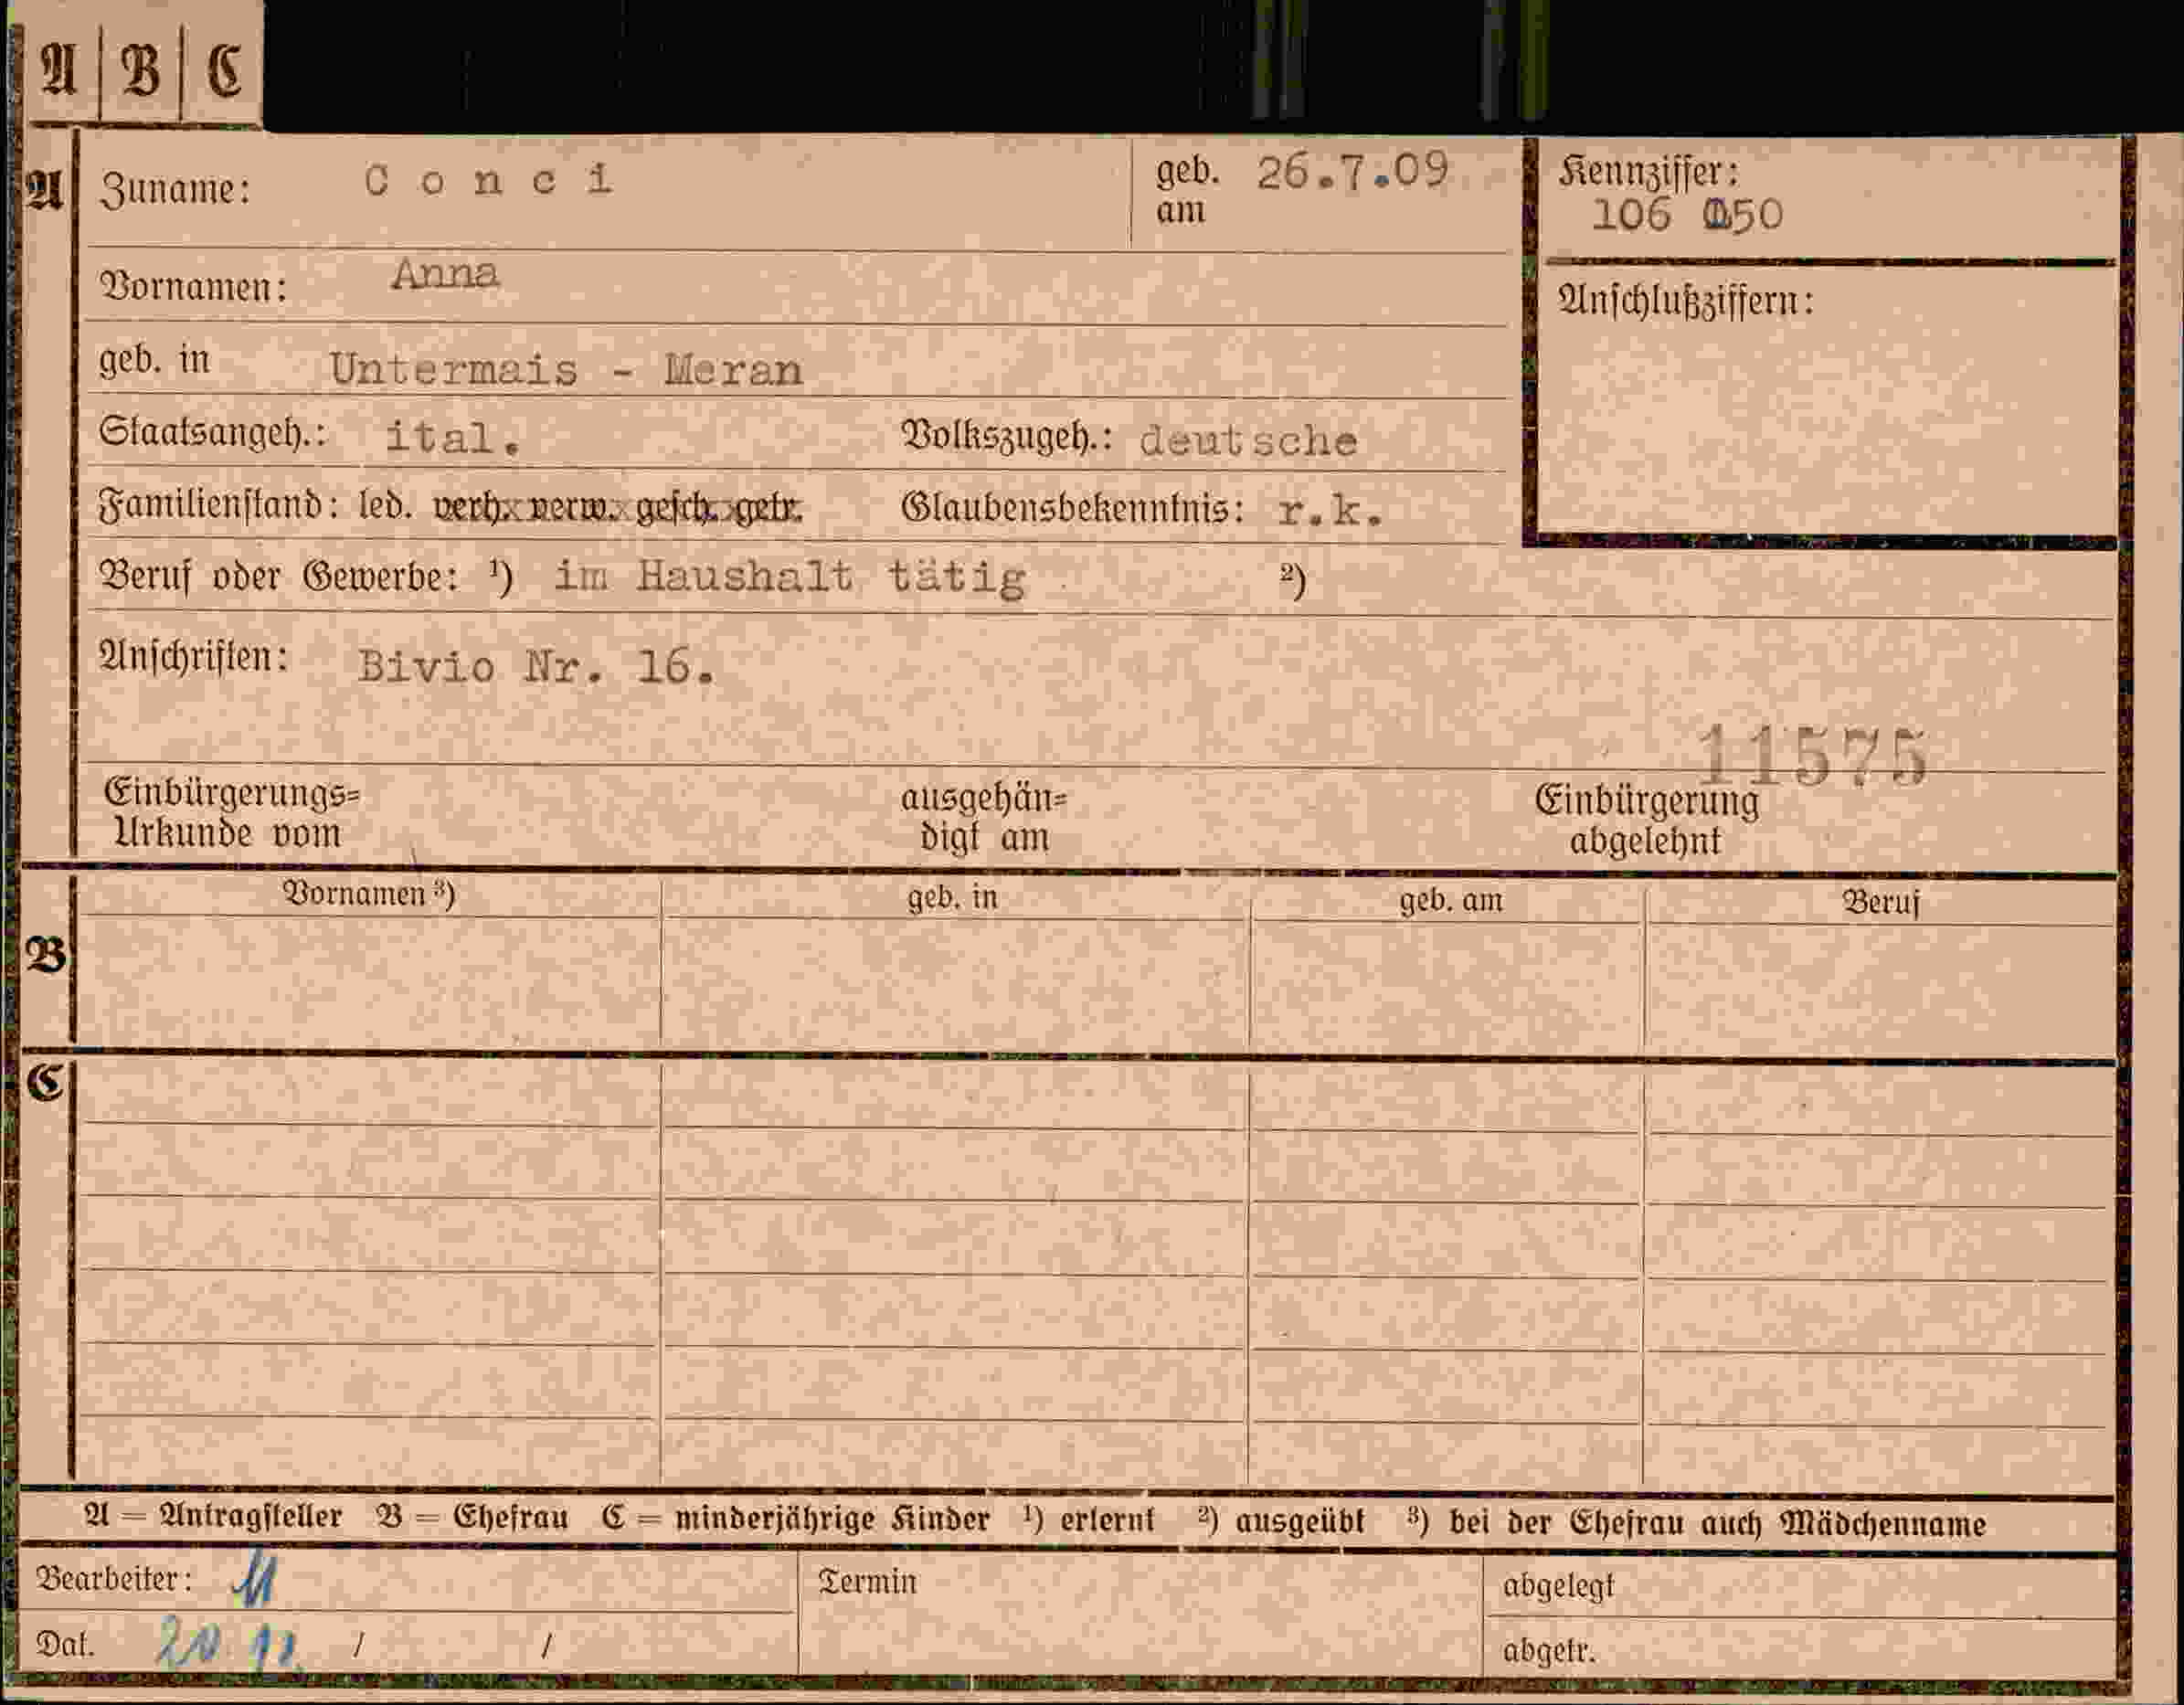 A B C
A Zuname: Conci geb. am 26.7.09 Kennziffer: 106 050
Vornamen: Anna Anschlußziffern:
geb. in Untermais - Meran
Staatsangeh.: ital. Volkszugeh.: deutsche
Familienstand: led. verh. verw. gesch. getr. Glaubensbekenntnis: r.k.
Beruf oder Gewerbe: ¹) im Haushalt tätig ²)
Anschriften: Bivio Nr. 16.
11575
Einbürgerungs= ausgehän= Einbürgerung
Urkunde vom digt am abgelehnt
Vornamen ³) geb. in geb. am Beruf
B
C
A = Antragsteller B = Ehefrau C = minderjährige Kinder ¹) erlernt ²) ausgeübt ³) bei der Ehefrau auch Mädchenname
Bearbeiter: Termin abgelegt
Dat. / / abgetr.